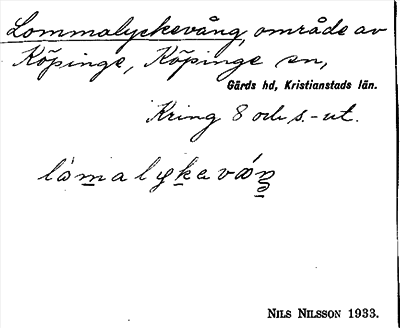 Lommalyckevång, område av
Köpinge, Köpinge sn,
Gärds hd, Kristianstads län.
Kring 8 och s.-ut.
NILS NILSSON 1933.